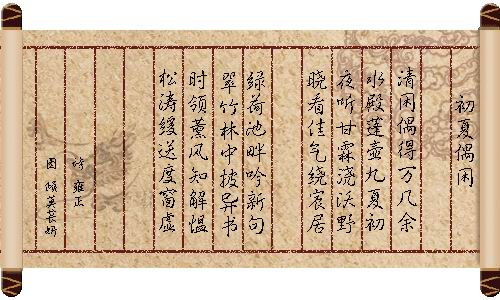 初夏偶闲
清闲偶得万几余
水殿蓬壶九夏初
夜听甘霖浇沃野
晓看佳气绕宸居
绿荷池畔吟新句
翠竹林中披异书
时领薰风知解愠
松涛缓送度窗虚
诗 雍正
图